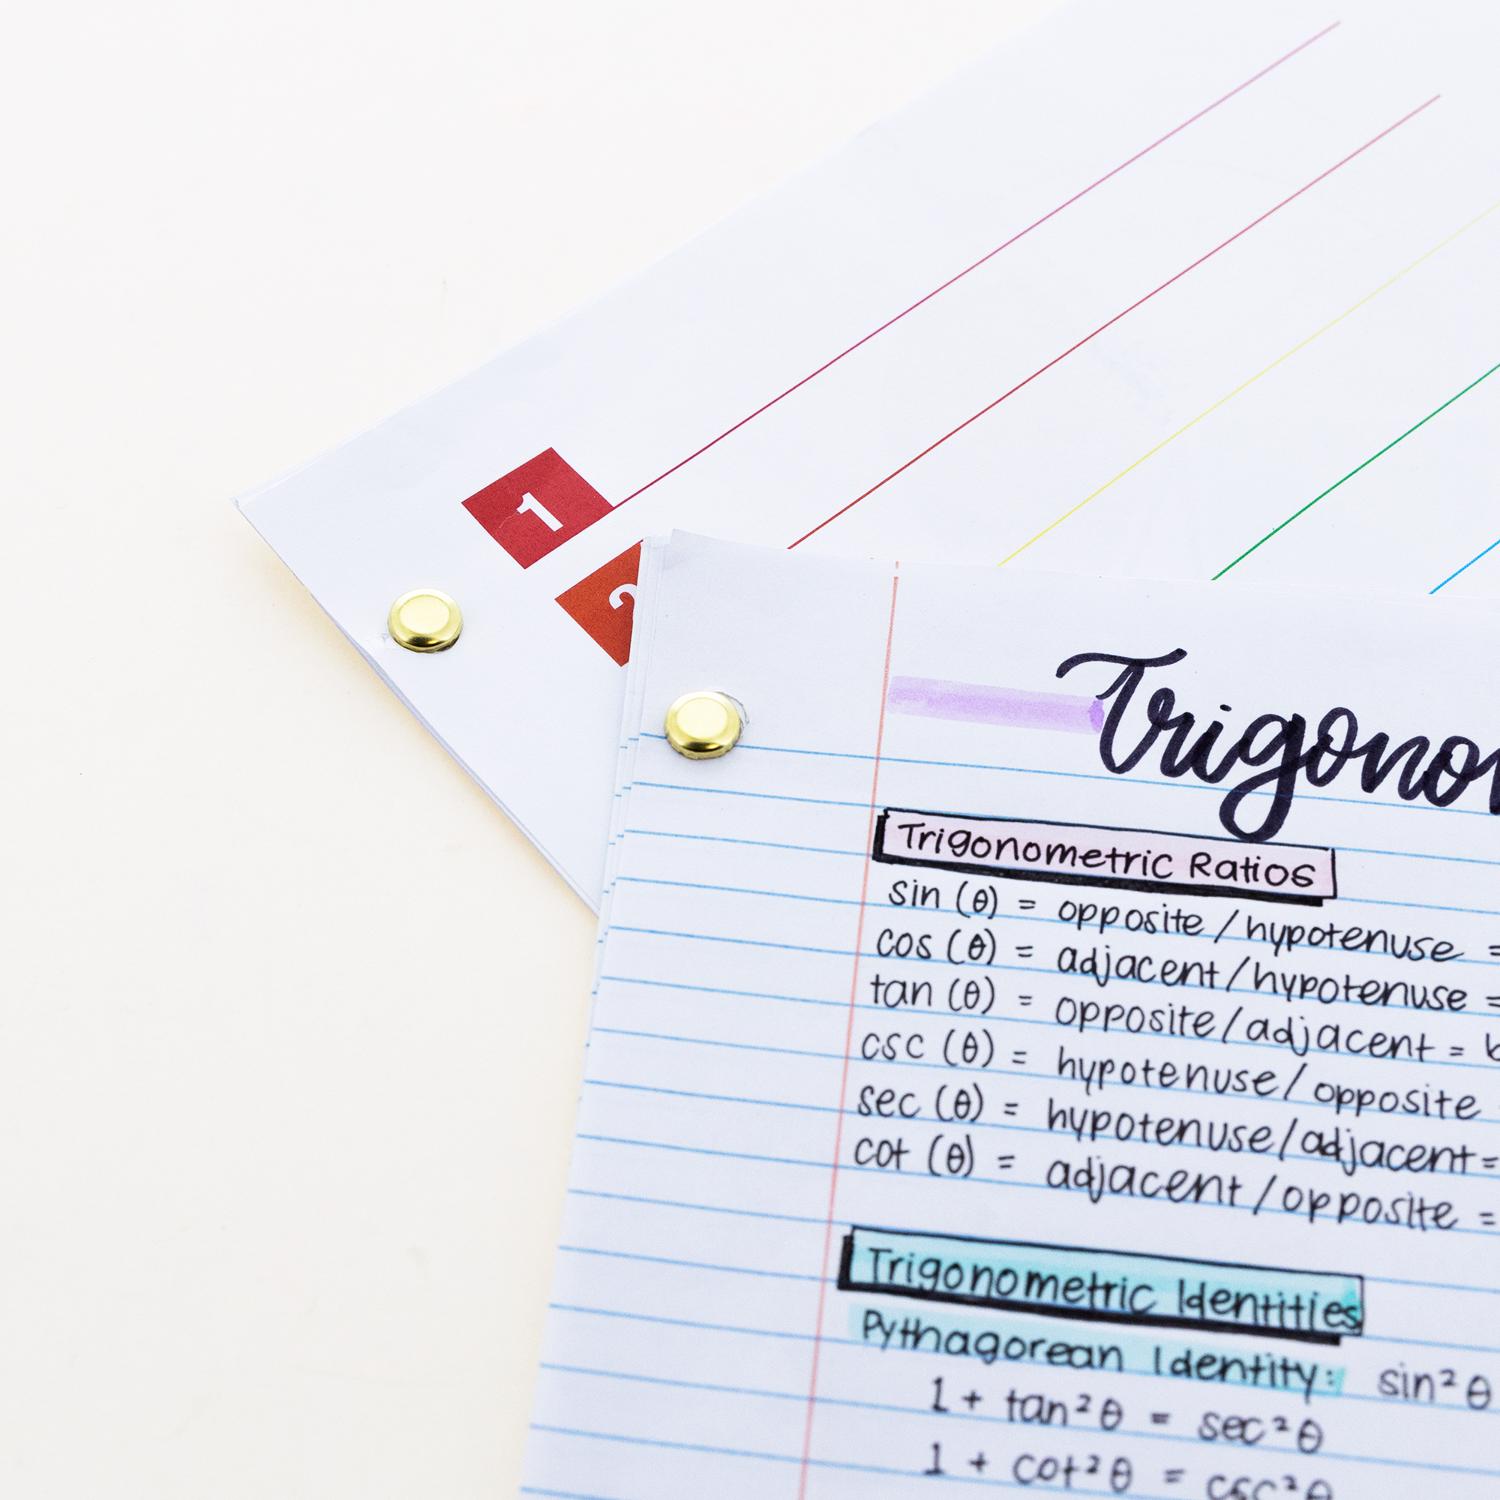 1
2
Trigono
Trigonometric Ratios
sin (θ) = opposite / hypotenuse =
cos (θ) = adjacent / hypotenuse =
tan (θ) = opposite / adjacent =
csc (θ) = hypotenuse / opposite
sec (θ) = hypotenuse / adjacent =
cot (θ) = adjacent / opposite =
Trigonometric Identities
Pythagorean Identity: sin²θ
1 + tan²θ = sec²θ
1 + cot²θ = csc²θ